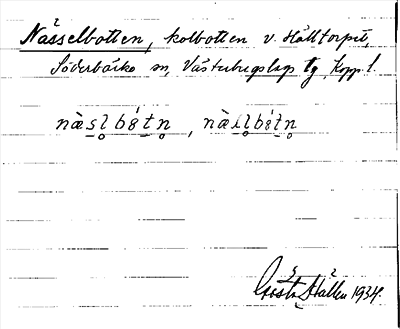 Nässelbotten, kolbotten v. Hålltorpet,
Söderbärke sn, Västerbergslags tg, Kopp. l.
næ̀sl̥bótn̥, næ̀sl̥bótn̥
Gösta Hallén 1934.